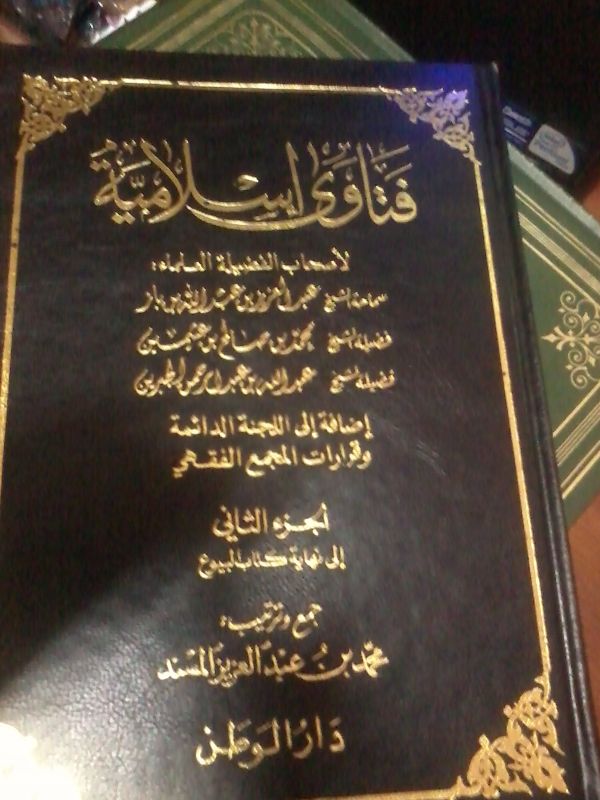 فتاوى إسلامية
لأصحاب الفضيلة العلماء:
سماحة الشيخ عبد العزيز بن عبد الله بن باز
فضيلة الشيخ محمد بن صالح بن عثيمين
فضيلة الشيخ عبد الله بن عبد الرحمن الجبرين
إضافة إلى اللجنة الدائمة
وقرارات المجمع الفقهي
الجزء الثاني
إلى نهاية كتاب البيوع
جمع وترتيب:
محمد بن عبد العزيز المسند
دار الوطن